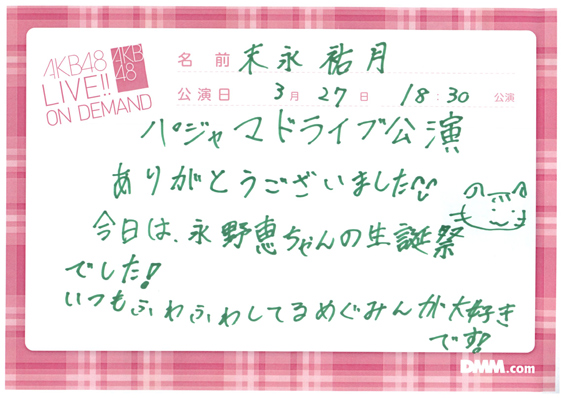 AKB48
LIVE!!
ON DEMAND
AKB
48
名前 末永祐月
公演日 3月27日 18:30 公演
パジャマドライブ公演
ありがとうございました
今日は、永野恵ちゃんの生誕祭
でした!
いつもふわふわしてるめぐみんが大好き
です!
DMM.com